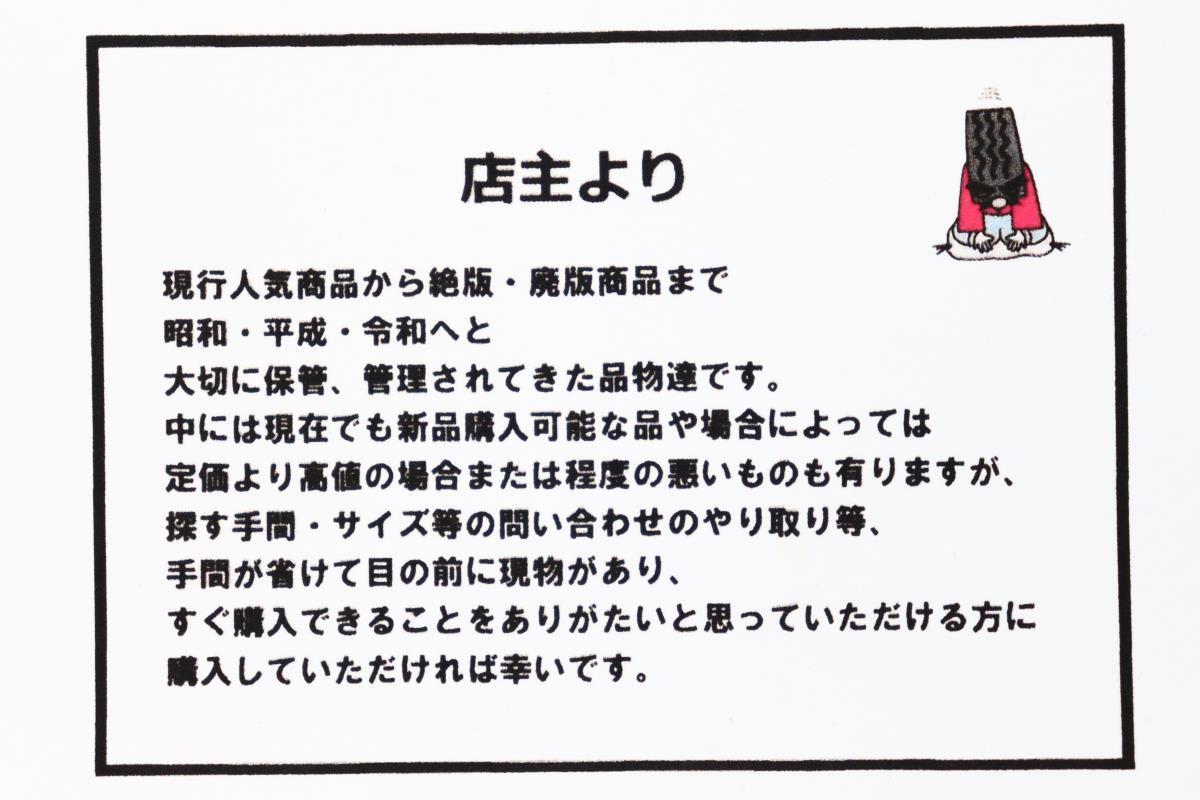 店主より
現行人気商品から絶版・廃版商品まで
昭和・平成・令和へと
大切に保管、管理されてきた品物達です。
中には現在でも新品購入可能な品や場合によっては
定価より高値の場合または程度の悪いものも有りますが、
探す手間・サイズ等の問い合わせのやり取り等、
手間が省けて目の前に現物があり、
すぐ購入できることをありがたいと思っていただける方に
購入していただければ幸いです。